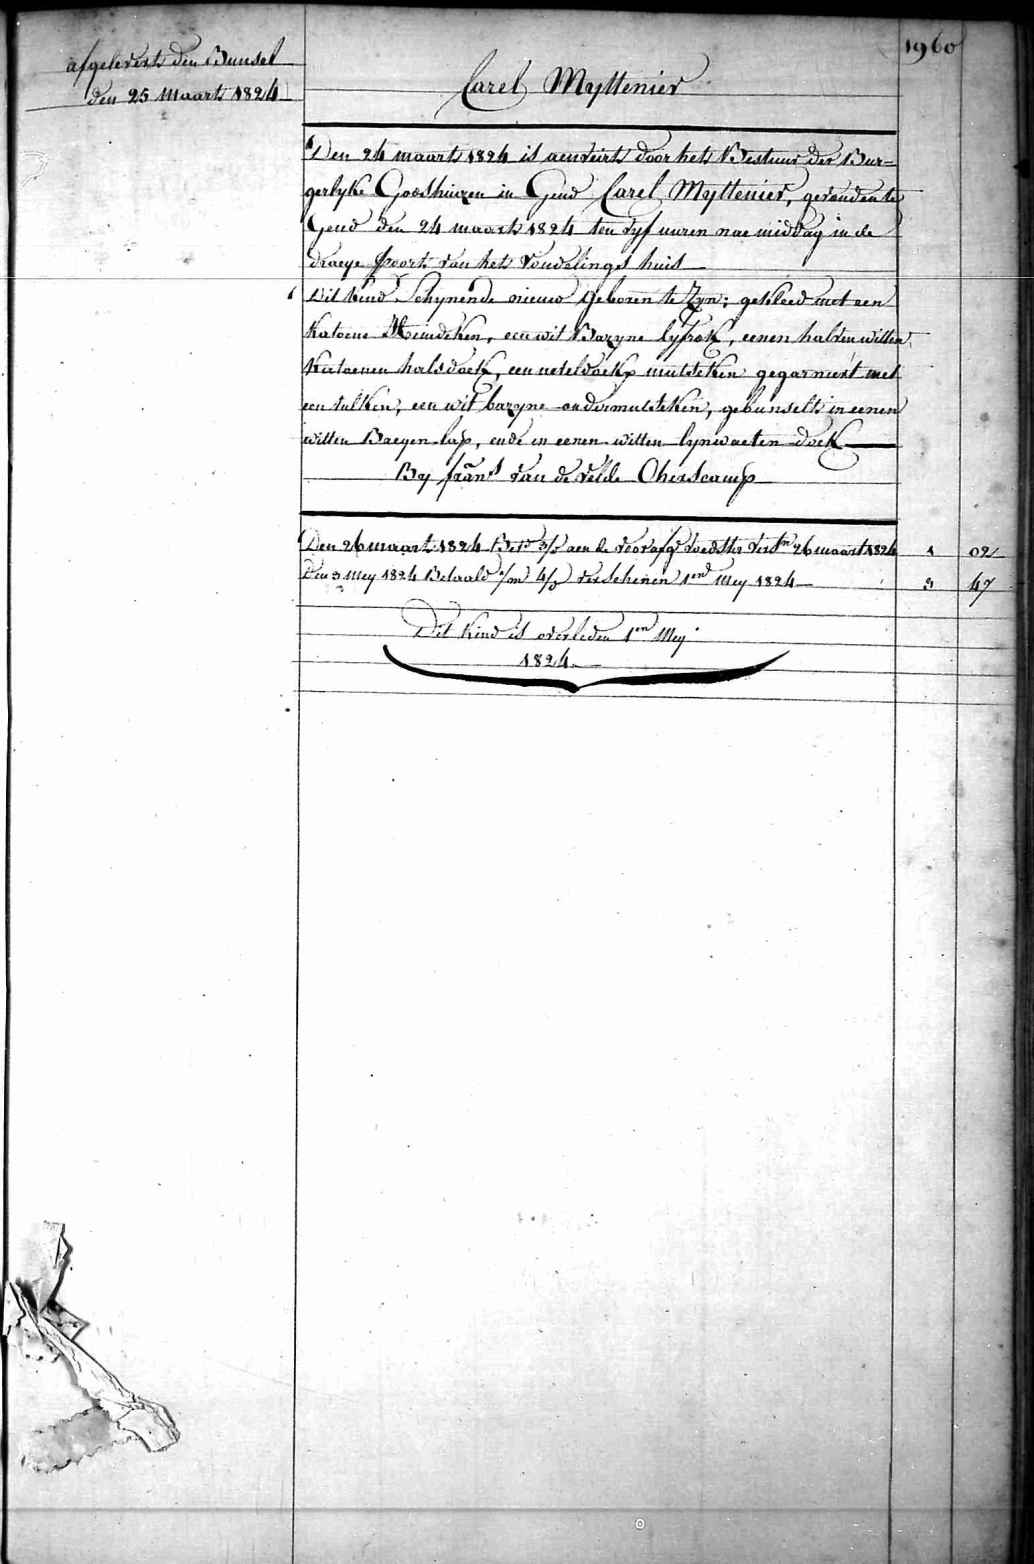 1960
afgelevert den Bunsel
den 25 maart 1824
Carel Myttenier
Den 24 maart 1824 is aenveirt door het Bestuur der Bur-
gerlyke Godshuizen in Gend Carel Myttenier, gevonden te
Gend den 24 maart 1824 ten vyf uuren nae middag in de
draeye Poort van het Vondelinge huis
Dit kind Schynende nieuw geboren te Zyn; gekleed met een
katoene Hemdeken, een wit Bazyne lyfrok, eenen halven witten
katoenen halsdoek, een neteldoekx mutsteken gegarniert met
een tulken, een wit bazyne ondermutsteken, gebunselt in eenen
witten Baeyen lap, ende in eenen witten lynwaeten doek
By frans van de Velde Oherscamp
Den 26 maart 1824 3/ aen de voedster 26 maart 1824 1 02
Den 3 Mey 1824 Betaald 4/ verschenen 1en Mey 1824 3 47
Dit kind is overleden 1en Mey
1824